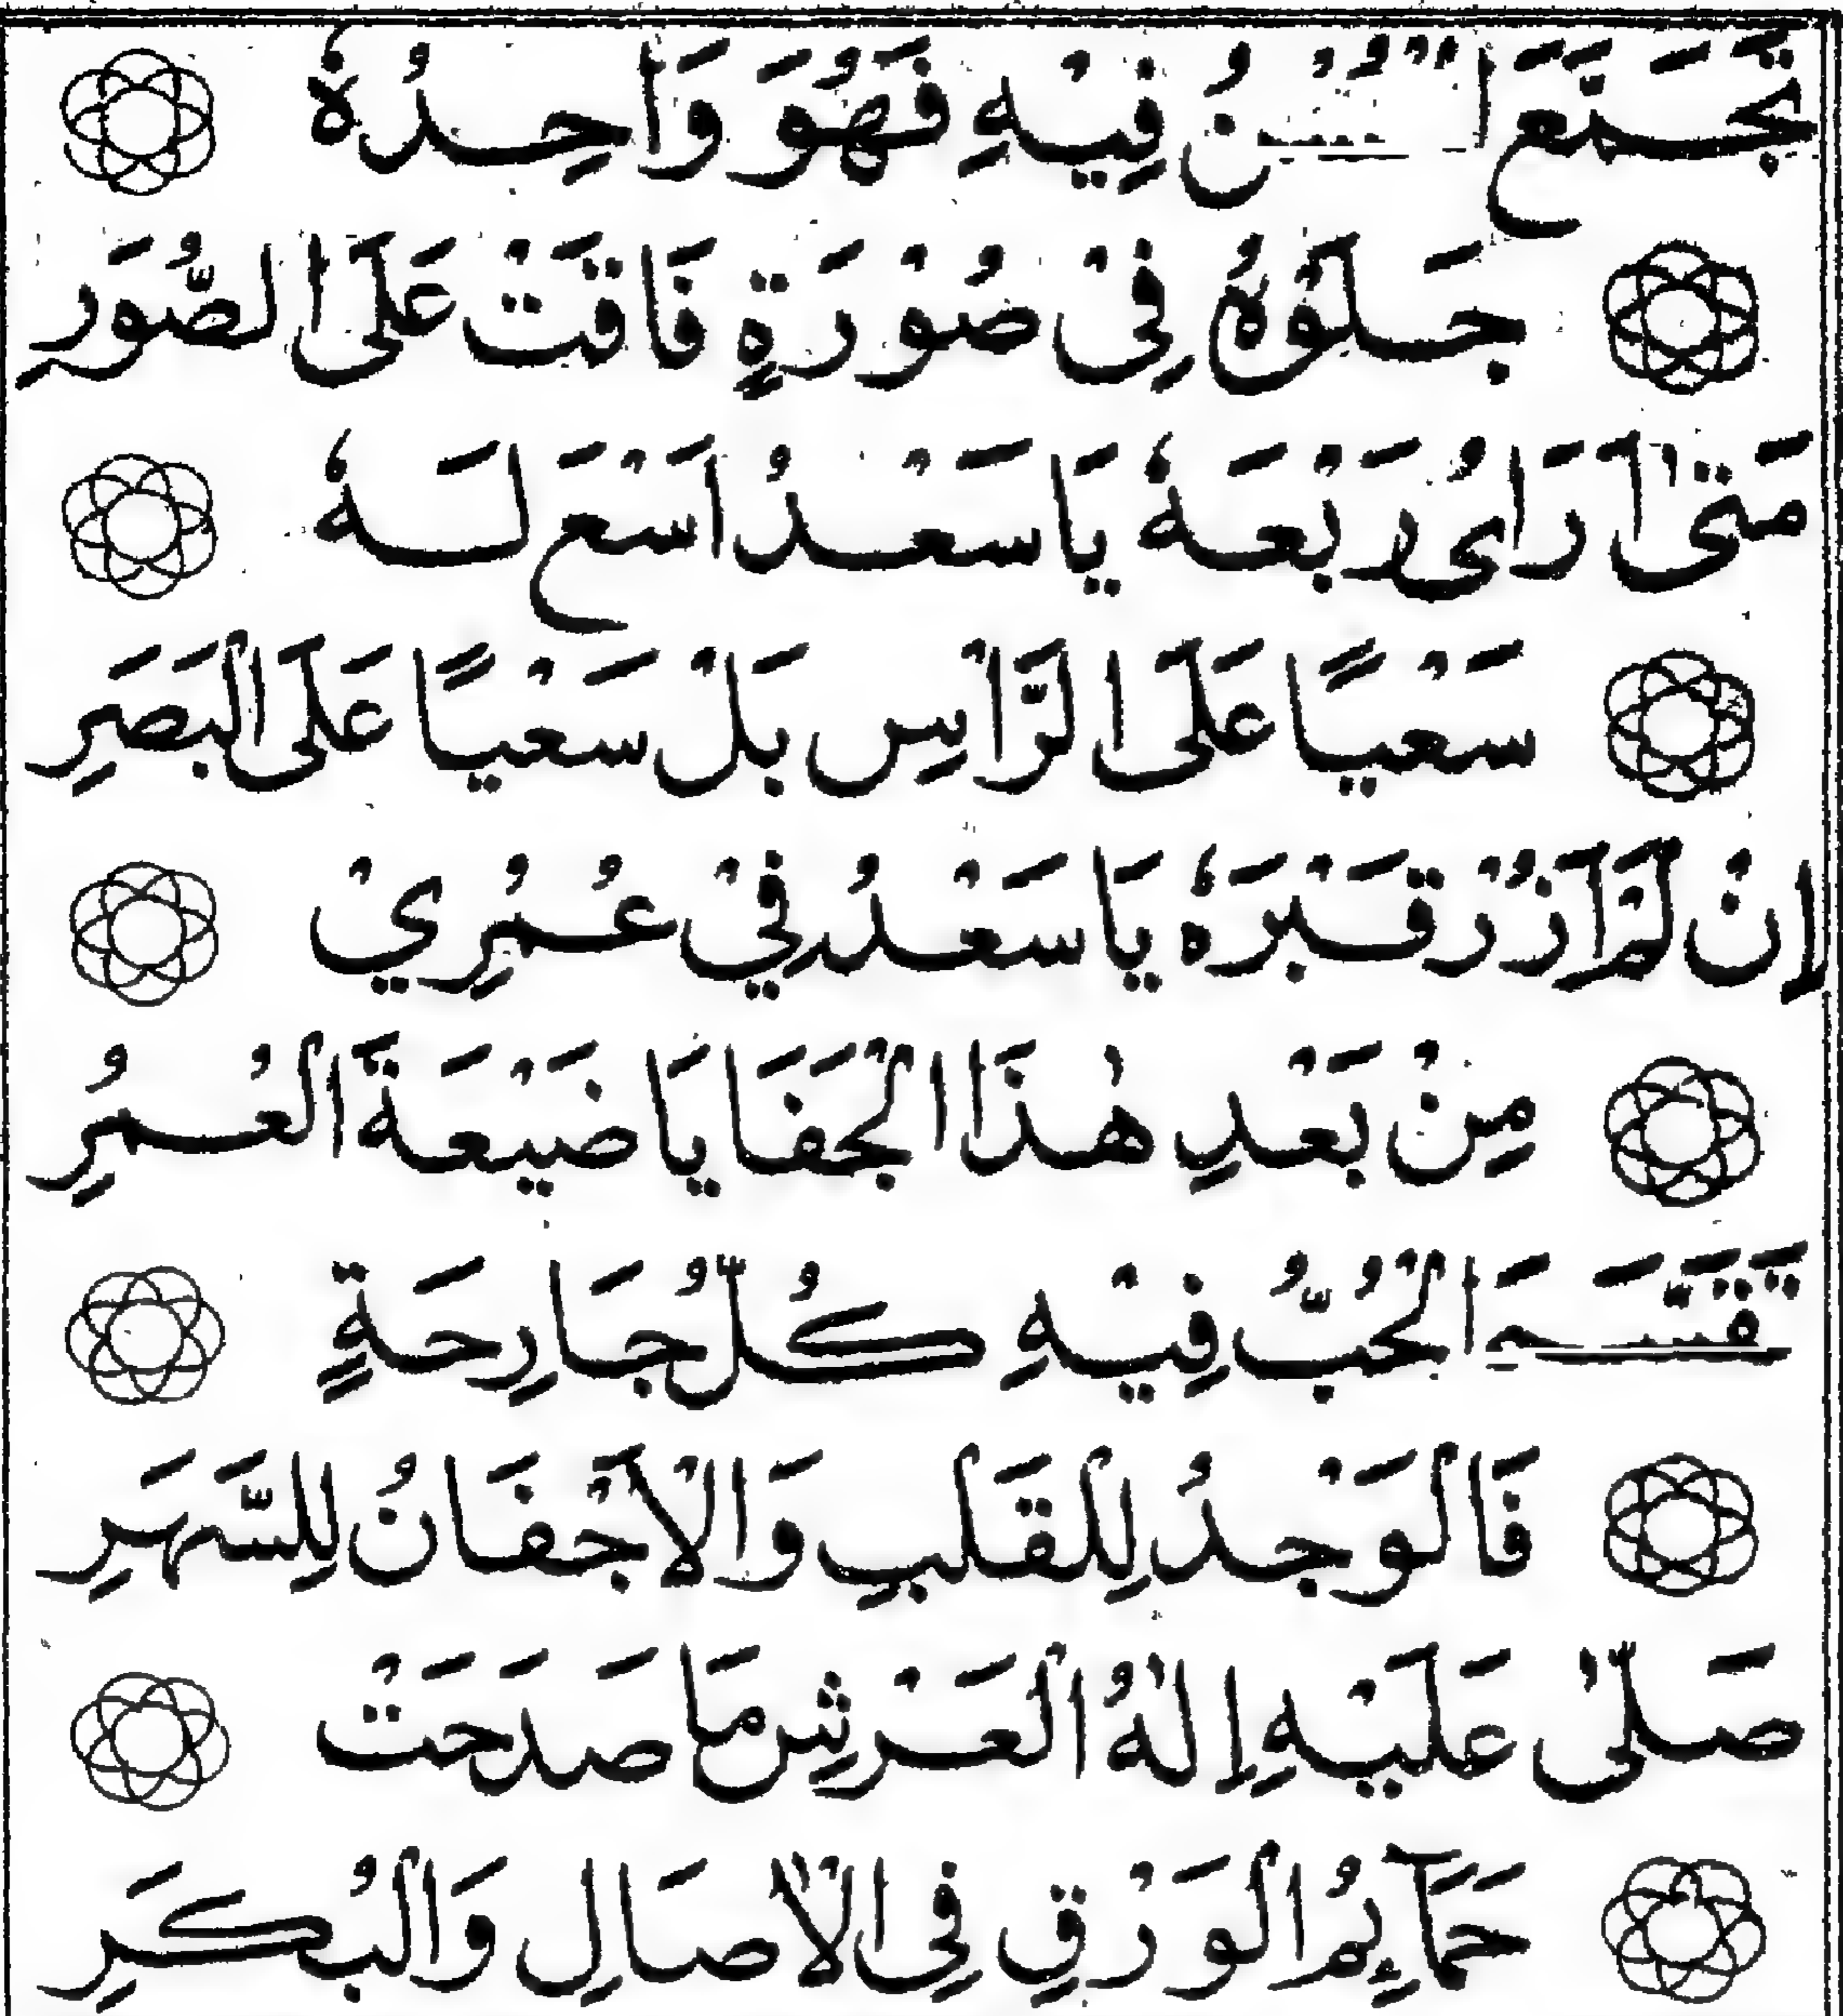 تَجَمَّعَ الْحُسْنُ فِيْهِ فَهُوَ وَاحِدُهٗ
جَلَوْهُ فِیْ صُوْرَةٍ فَاقَتْ عَلَی الصُّوَرِ
مَتٰی اَرَایُ رَبْعَهٗ يَا سَعْدُ اَسْعَ لَهٗ
سَعْيًا عَلَی الرَّاْسِ بَلْ سَعْيًا عَلَی الْبَصَرِ
اِنْ لَمْ اَزُرْ قَبْرَهٗ يَا سَعْدُ فِيْ عُمُرِيْ
مِنْ بَعْدِ هٰذَا الْجَفَا يَا ضَيْعَةَ الْعُمُرِ
تَقَسَّمَ الْحُبُّ فِيْهِ كُلُّ جَارِحَةٍ
فَالْوَجْدُ لِلْقَلْبِ وَالْاَجْفَانُ لِلسَّهَرِ
صَلّٰی عَلَيْهِ اِلٰهُ الْعَرْشِ مَا صَدَحَتْ
حَمَآئِمُ الْوَرْقِ فِی الْاٰصَالِ وَالْبُكَرِ